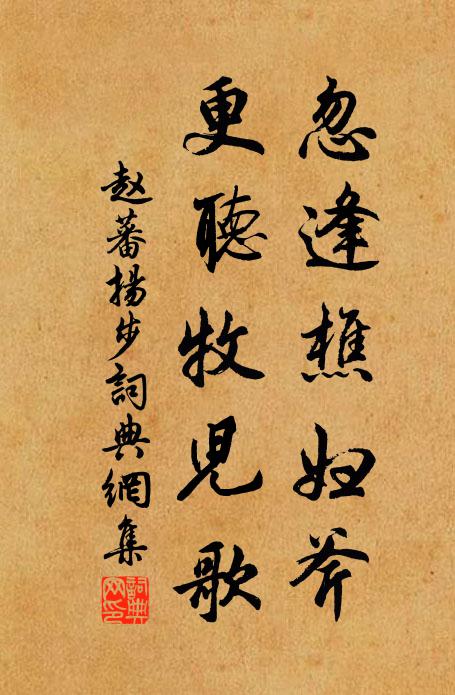 忽逢樵妇斧
更聽牧兒歌
赵蕃揚步詞典網集
詞典网印